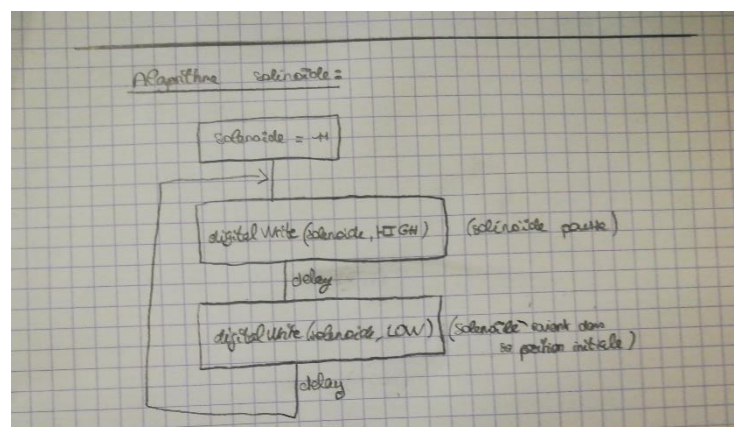 Algorithme solinoïde =
solenoide =
digitalWrite (solenoide, HIGH) (solinoïde pousse)
delay
digitalWrite (solenoide, LOW) (solenoïde revient dans
sa position initiale)
delay